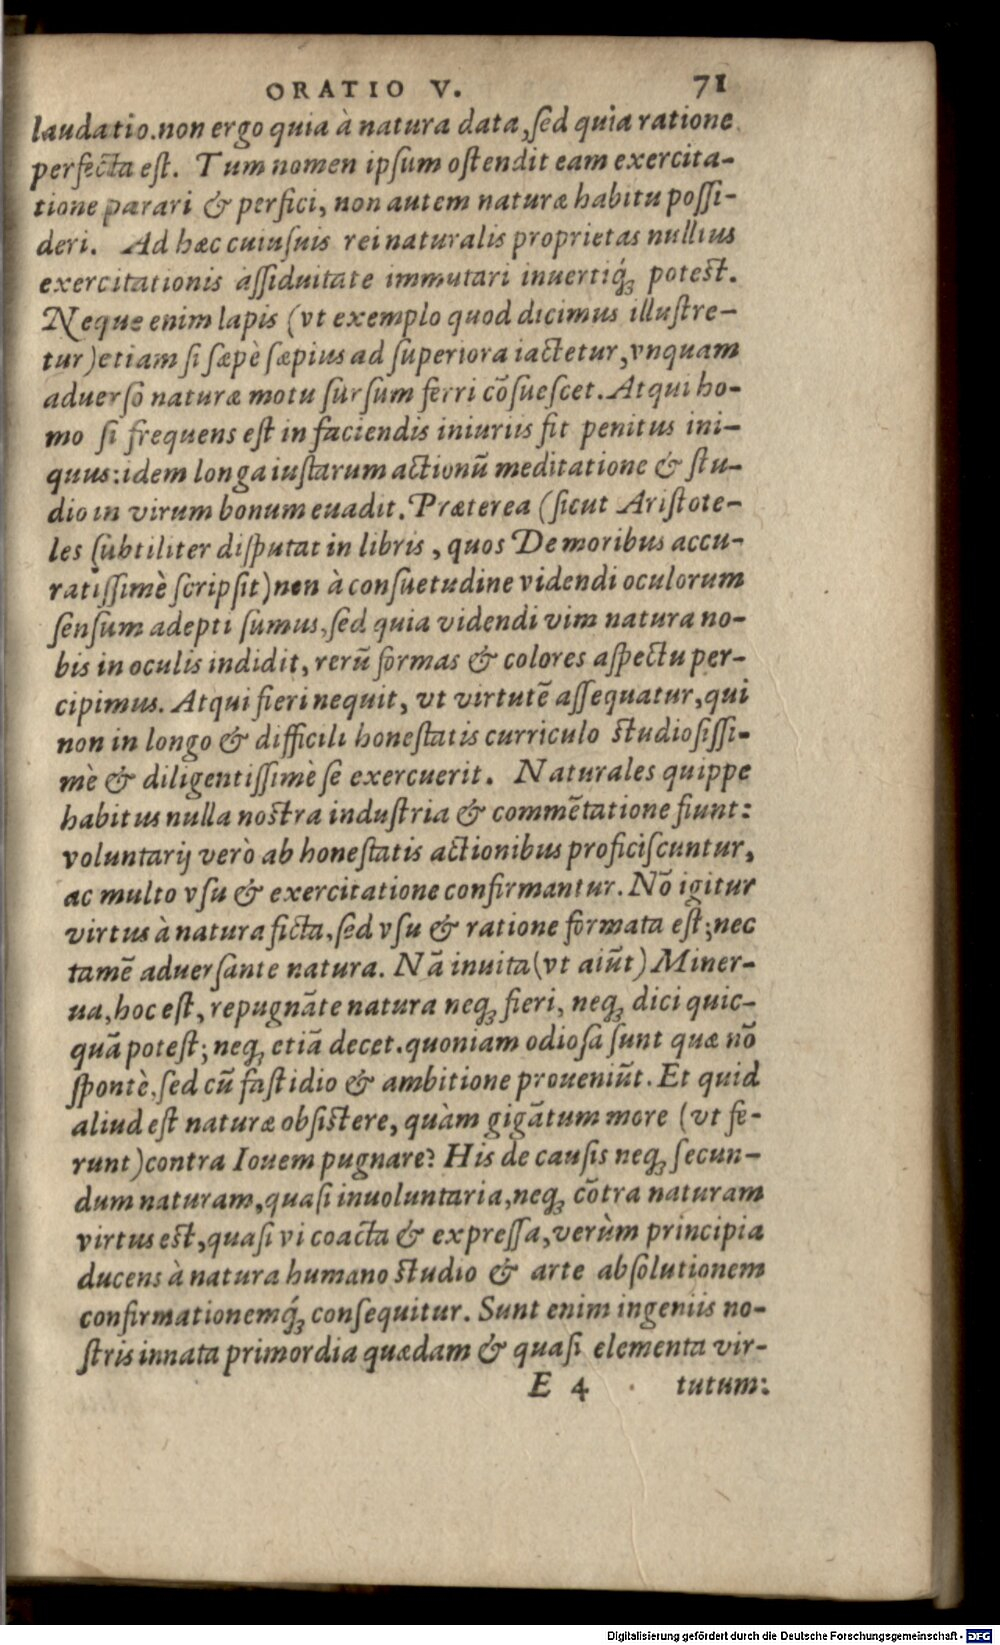 ORATIO V. 71
laudatio. non ergo quia à natura data, ſed quia ratione
perfecta eſt. Tum nomen ipſum oſtendit eam exercita-
tione parari & perfici, non autem naturæ habitu poſſi-
deri. Ad hæc cuiuſuis rei naturalis proprietas nullius
exercitationis aſſiduitate immutari inuertiq́ꝫ poteſt.
Neque enim lapis (vt exemplo quod dicimus illuſtre-
tur) etiam ſi ſæpè ſæpius ad ſuperiora iactetur, vnquam
aduerſo naturæ motu ſurſum ferri cõſueſcet. Atqui ho-
mo ſi frequens eſt in faciendis iniuriis fit penitus ini-
quus: idem longa iuſtarum actionũ meditatione & ſtu-
dio in virum bonum euadit. Præterea (ſicut Ariſtote-
les ſubtiliter diſputat in libris, quos De moribus accu-
ratiſſimè ſcripſit) non à conſuetudine videndi oculorum
ſenſum adepti ſumus, ſed quia videndi vim natura no-
bis in oculis indidit, rerũ formas & colores aſpectu per-
cipimus. Atqui fieri nequit, vt virtutẽ aſſequatur, qui
non in longo & difficili honeſtatis curriculo ſtudioſiſſi-
mè & diligentiſſimè ſe exercuerit. Naturales quippe
habitus nulla noſtra induſtria & commẽtatione fiunt:
voluntarij verò ab honeſtatis actionibus proficiſcuntur,
ac multo vſu & exercitatione confirmantur. Nõ igitur
virtus à natura ficta, ſed vſu & ratione formata eſt; nec
tamẽ aduerſante natura. Nã inuita (vt aiũt) Miner-
ua, hoc eſt, repugnãte natura neqꝫ fieri, neqꝫ dici quic-
quã poteſt; neqꝫ etiã decet. quoniam odioſa ſunt quæ nõ
ſpontè, ſed cũ faſtidio & ambitione proueniũt. Et quid
aliud eſt naturæ obſiſtere, quàm gigãtum more (vt fe-
runt) contra Iouem pugnare? His de cauſis neqꝫ ſecun-
dum naturam, quaſi inuoluntaria, neqꝫ cõtra naturam
virtus eſt, quaſi vi coacta & expreſſa, verùm principia
ducens à natura humano ſtudio & arte abſolutionem
confirmationemq́ꝫ conſequitur. Sunt enim ingeniis no-
ſtris innata primordia quædam & quaſi elementa vir-
E 4 tutum:
Digitalisierung gefördert durch die Deutsche Forschungsgemeinschaft - DFG